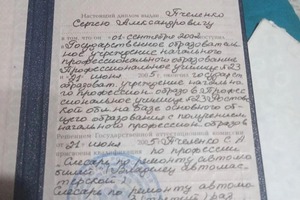 Настоящий диплом выдан Пяченко
Сергею Александровичу
в том, что он «01» сентября 2002
Государственное образователь
ное учреждение начального
профессионального образования
Профессиональное училище №23
21 июня 2005 г. окончил государст
образоват. учреждение началь
го професси. образо в Професс
сиональное училище №23 Ростовс
кой обл. на базе основного об
щего образования с получением
начального профессион. образов
Решением Государственной аттестационной комиссии
21 июня 2005 Пяченко С А
присвоена квалификация по профессии
Слесарь по ремонту автомо
билей; (Владелец автомас
терской)
Слесарь по ремонту автомо
3 (третий) раз